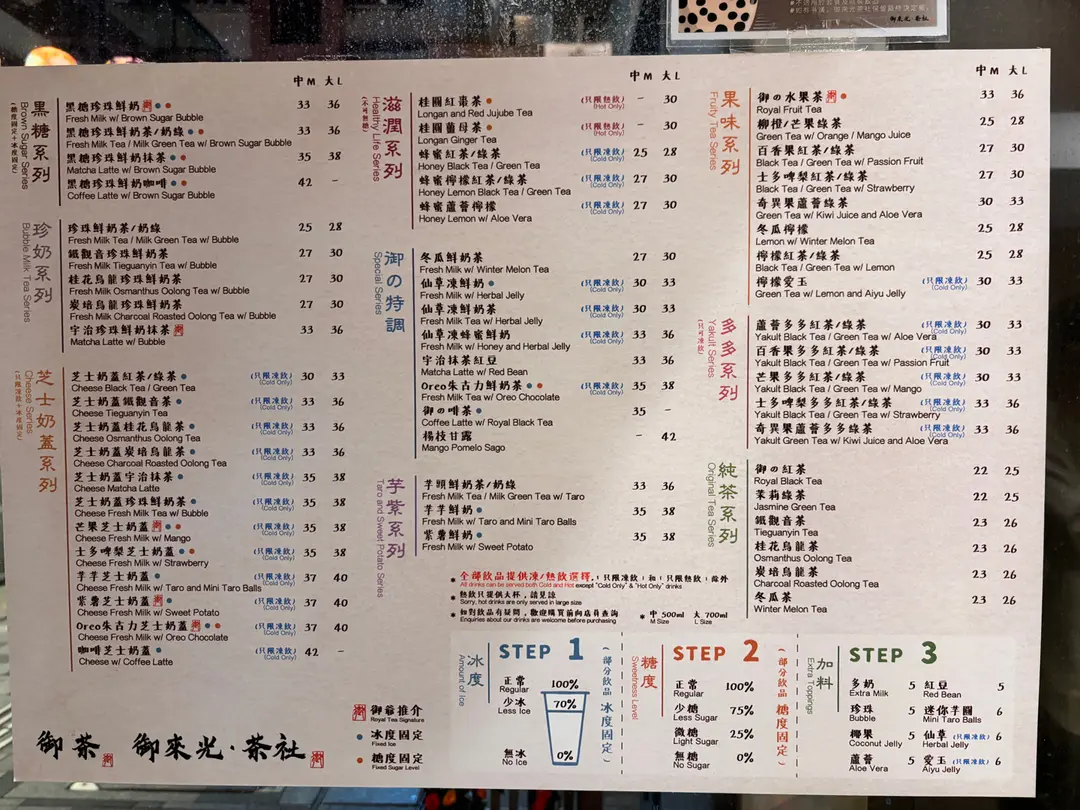 御來光·茶社
中 M 大 L
黑糖系列
Brown Sugar Series
(糖度固定+冰度固定)
黑糖珍珠鮮奶
33 36
Fresh Milk w/ Brown Sugar Bubble
黑糖珍珠鮮奶茶/奶綠
33 36
Fresh Milk Tea / Milk Green Tea w/ Brown Sugar Bubble
黑糖珍珠鮮奶抹茶
35 38
Matcha Latte w/ Brown Sugar Bubble
黑糖珍珠鮮奶咖啡
42 –
Coffee Latte w/ Brown Sugar Bubble
珍奶系列
Bubble Milk Tea Series
珍珠鮮奶茶/奶綠
25 28
Fresh Milk Tea / Milk Green Tea w/ Bubble
鐵觀音珍珠鮮奶茶
27 30
Fresh Milk Tieguanyin Tea w/ Bubble
桂花烏龍珍珠鮮奶茶
27 30
Fresh Milk Osmanthus Oolong Tea w/ Bubble
炭培烏龍珍珠鮮奶茶
27 30
Fresh Milk Charcoal Roasted Oolong Tea w/ Bubble
宇治珍珠鮮奶抹茶
33 36
Matcha Latte w/ Bubble
芝士奶蓋系列
Cheese Series
(只限凍飲+冰度固定)
芝士奶蓋紅茶/綠茶 (只限凍飲) 30 33
Cheese Black Tea / Green Tea (Cold Only)
芝士奶蓋鐵觀音茶 (只限凍飲) 33 36
Cheese Tieguanyin Tea (Cold Only)
芝士奶蓋桂花烏龍茶 (只限凍飲) 33 36
Cheese Osmanthus Oolong Tea (Cold Only)
芝士奶蓋炭培烏龍茶 (只限凍飲) 33 36
Cheese Charcoal Roasted Oolong Tea (Cold Only)
芝士奶蓋宇治抹茶 (只限凍飲) 35 38
Cheese Matcha Latte (Cold Only)
芝士奶蓋珍珠鮮奶茶 (只限凍飲) 35 38
Cheese Fresh Milk Tea w/ Bubble (Cold Only)
芒果芝士奶蓋 (只限凍飲) 35 38
Cheese Fresh Milk w/ Mango (Cold Only)
士多啤梨芝士奶蓋 (只限凍飲) 35 38
Cheese Fresh Milk w/ Strawberry (Cold Only)
芋芋芝士奶蓋 (只限凍飲) 37 40
Cheese Fresh Milk w/ Taro and Mini Taro Balls (Cold Only)
紫薯芝士奶蓋 (只限凍飲) 37 40
Cheese Fresh Milk w/ Sweet Potato (Cold Only)
Oreo朱古力芝士奶蓋 (只限凍飲) 37 40
Cheese Fresh Milk w/ Oreo Chocolate (Cold Only)
咖啡芝士奶蓋 (只限凍飲) 42 –
Cheese w/ Coffee Latte (Cold Only)
御茶 御來光·茶社
御爺推介
Royal Tea Signature
冰度固定
Fixed Ice
糖度固定
Fixed Sugar Level
中 M 大 L
滋潤系列
Healthy Life Series
(不可無糖)
桂圓紅棗茶 (只限熱飲) – 30
Longan and Red Jujube Tea (Hot Only)
桂圓薑母茶 (只限熱飲) – 30
Longan Ginger Tea (Hot Only)
蜂蜜紅茶/綠茶 (只限凍飲) 25 28
Honey Black Tea / Green Tea (Cold Only)
蜂蜜檸檬紅茶/綠茶 (只限凍飲) 27 30
Honey Lemon Black Tea / Green Tea (Cold Only)
蜂蜜蘆薈檸檬 (只限凍飲) 27 30
Honey Lemon w/ Aloe Vera (Cold Only)
御の特調
Special Series
冬瓜鮮奶茶 27 30
Fresh Milk w/ Winter Melon Tea
仙草凍鮮奶 (只限凍飲) 30 33
Fresh Milk w/ Herbal Jelly (Cold Only)
仙草凍鮮奶茶 (只限凍飲) 30 33
Fresh Milk Tea w/ Herbal Jelly (Cold Only)
仙草凍蜂蜜鮮奶 (只限凍飲) 33 36
Fresh Milk w/ Honey and Herbal Jelly (Cold Only)
宇治抹茶紅豆 33 36
Matcha Latte w/ Red Bean
Oreo朱古力鮮奶茶 (只限凍飲) 35 38
Fresh Milk Tea w/ Oreo Chocolate (Cold Only)
御の啡茶 35 –
Coffee Latte w/ Royal Black Tea
楊枝甘露 – 42
Mango Pomelo Sago
芋紫系列
Taro and Sweet Potato Series
芋頭鮮奶茶/奶綠 33 36
Fresh Milk Tea / Milk Green Tea w/ Taro
芋芋鮮奶 35 38
Fresh Milk w/ Taro and Mini Taro Balls
紫薯鮮奶 35 38
Fresh Milk w/ Sweet Potato
* 全部飲品提供凍/熱飲選擇,「只限凍飲」和「只限熱飲」除外
All drinks can be served both Cold and Hot except "Cold Only" & "Hot Only" drinks
* 熱飲只提供大杯,請見諒
Sorry, hot drinks are only served in large size
* 如對飲品有疑問,歡迎購買前向店員查詢
Enquiries about our drinks are welcome before purchasing
* 中 500ml 大 700ml
M Size L Size
中 M 大 L
果味系列
Fruity Tea Series
御の水果茶 33 36
Royal Fruit Tea
柳橙/芒果綠茶 25 28
Green Tea w/ Orange / Mango Juice
百香果紅茶/綠茶 27 30
Black Tea / Green Tea w/ Passion Fruit
士多啤梨紅茶/綠茶 27 30
Black Tea / Green Tea w/ Strawberry
奇異果蘆薈綠茶 30 33
Green Tea w/ Kiwi Juice and Aloe Vera
冬瓜檸檬 25 28
Lemon w/ Winter Melon Tea
檸檬紅茶/綠茶 25 28
Black Tea / Green Tea w/ Lemon
檸檬愛玉 (只限凍飲) 30 33
Green Tea w/ Lemon and Aiyu Jelly (Cold Only)
多多系列
Yakult Series
(只可凍飲)
蘆薈多多紅茶/綠茶 (只限凍飲) 30 33
Yakult Black Tea / Green Tea w/ Aloe Vera (Cold Only)
百香果多多紅茶/綠茶 (只限凍飲) 30 33
Yakult Black Tea / Green Tea w/ Passion Fruit (Cold Only)
芒果多多紅茶/綠茶 (只限凍飲) 30 33
Yakult Black Tea / Green Tea w/ Mango (Cold Only)
士多啤梨多多紅茶/綠茶 (只限凍飲) 33 36
Yakult Black Tea / Green Tea w/ Strawberry (Cold Only)
奇異果蘆薈多多綠茶 (只限凍飲) 33 36
Yakult Green Tea w/ Kiwi Juice and Aloe Vera (Cold Only)
純茶系列
Original Tea Series
御の紅茶 22 25
Royal Black Tea
茉莉綠茶 22 25
Jasmine Green Tea
鐵觀音茶 23 26
Tieguanyin Tea
桂花烏龍茶 23 26
Osmanthus Oolong Tea
炭培烏龍茶 23 26
Charcoal Roasted Oolong Tea
冬瓜茶 23 26
Winter Melon Tea
STEP 1
冰度
Amount of Ice
(部分飲品冰度固定)
正常 100%
Regular
少冰 70%
Less Ice
無冰 0%
No Ice
STEP 2
糖度
Sweetness Level
(部分飲品糖度固定)
正常 100%
Regular
少糖 75%
Less Sugar
微糖 25%
Light Sugar
無糖 0%
No Sugar
STEP 3
加料
Extra Toppings
多奶 5 紅豆 5
Extra Milk Red Bean
珍珠 5 迷你芋圓 5
Bubble Mini Taro Balls
椰果 5 仙草 (只限凍飲) 6
Coconut Jelly Herbal Jelly (Cold Only)
蘆薈 5 愛玉 (只限凍飲) 6
Aloe Vera Aiyu Jelly (Cold Only)